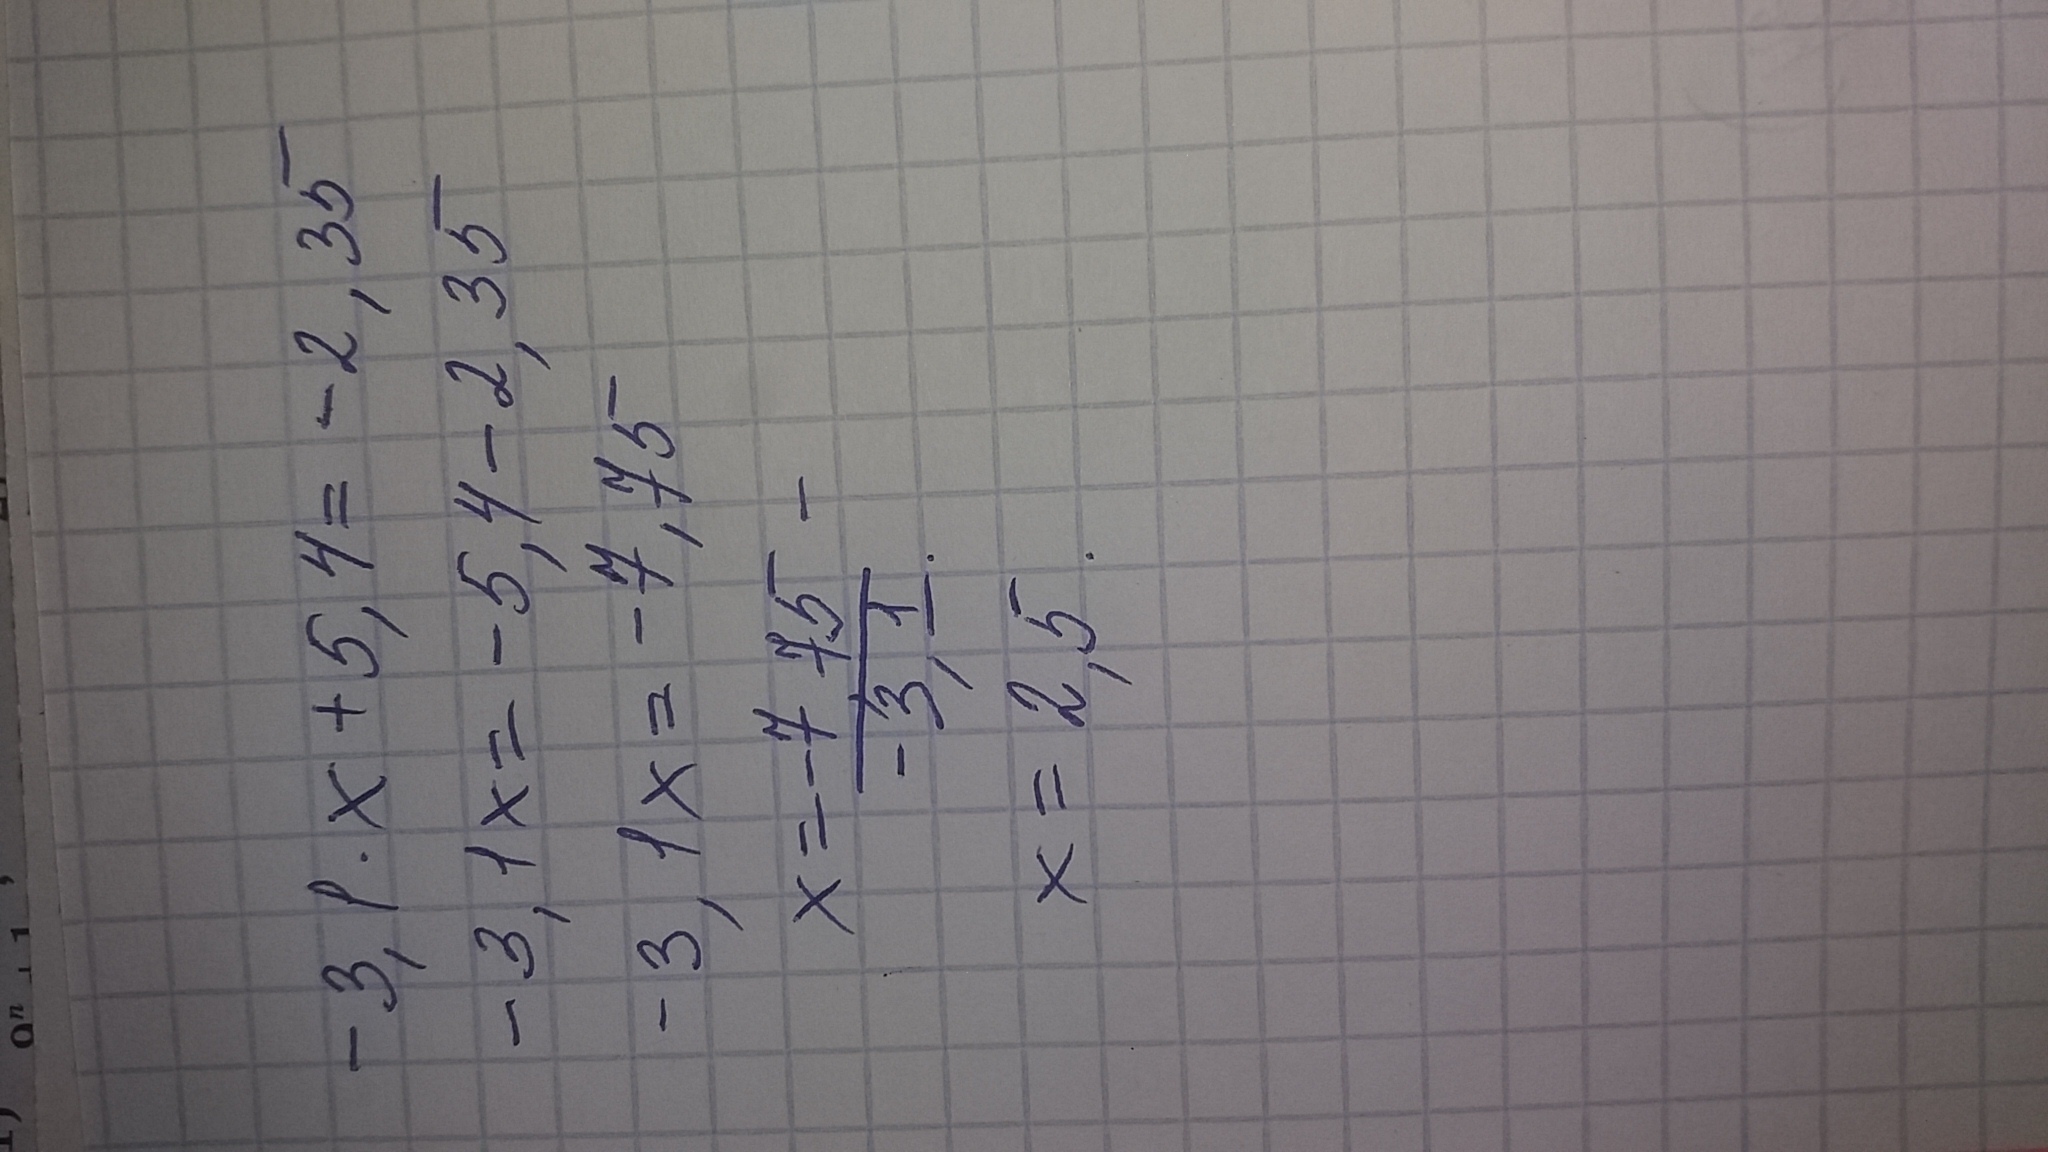 -3,1·x+5,4=-2,35
-3,1x=-5,4-2,35
-3,1x=-7,75
x=-7 75 -
-3,1.
x=2,5.